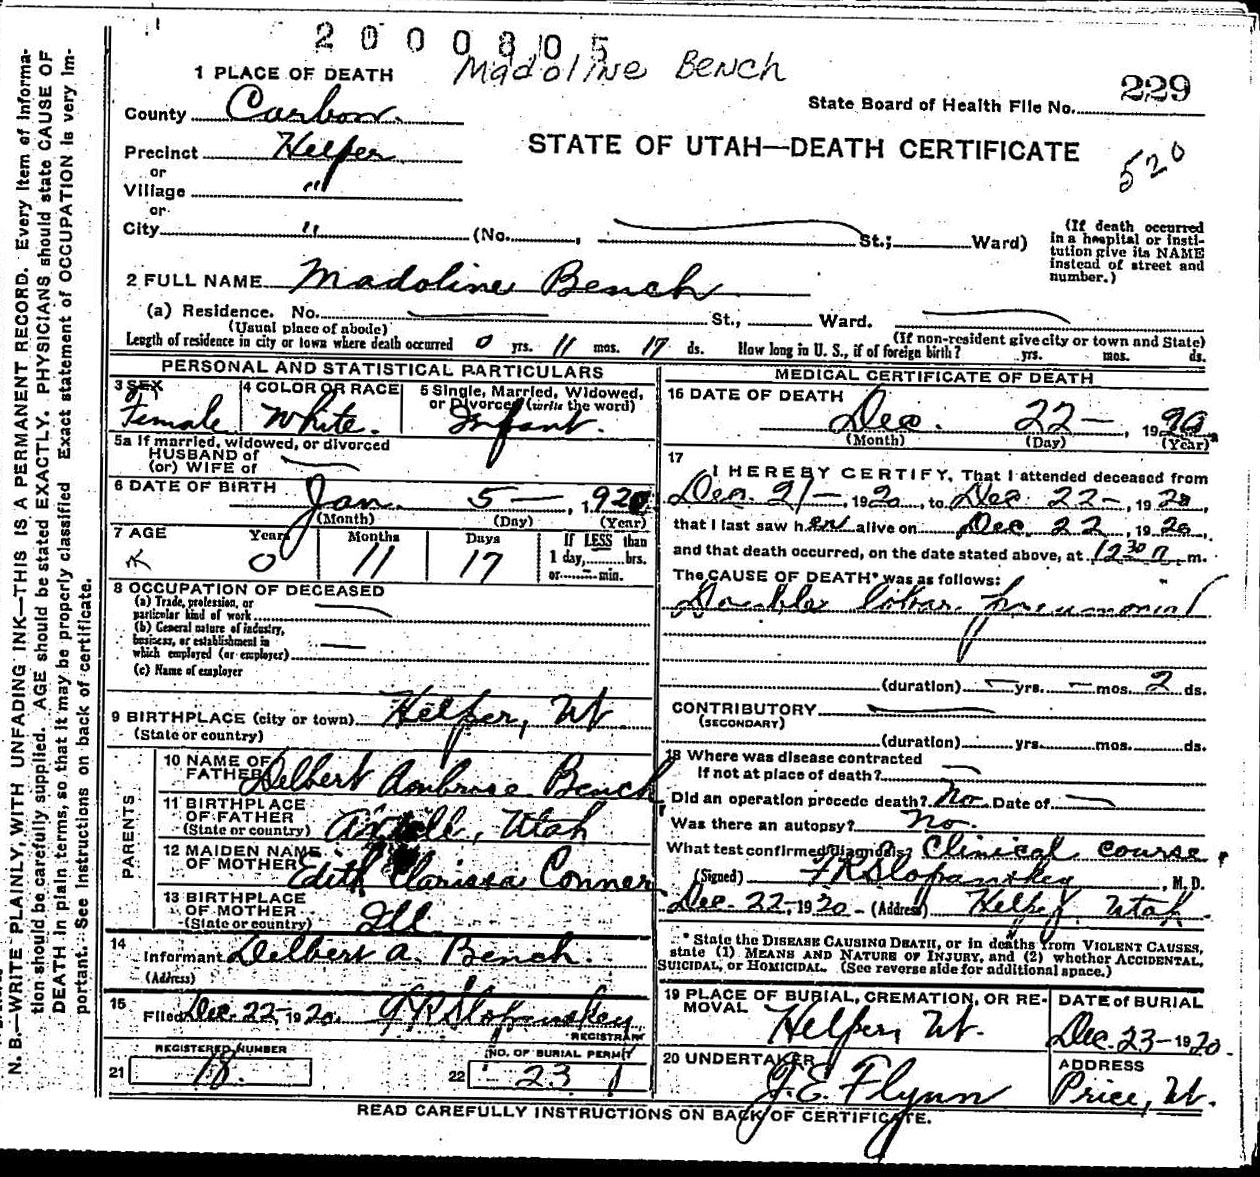 2000805
Madoline Bench
1 PLACE OF DEATH
229
State Board of Health File No.
County Carbon.
STATE OF UTAH—DEATH CERTIFICATE
520
Precinct Helper
or
Village "
or
City " (No. , St.; Ward)
(If death occurred
in a hospital or insti-
tution give its NAME
instead of street and
number.)
2 FULL NAME Madoline Bench
(a) Residence. No. St., Ward.
(Usual place of abode) (If non-resident give city or town and State)
Length of residence in city or town where death occurred 0 yrs. 11 mos. 17 ds. How long in U. S., if of foreign birth? yrs. mos. ds.
PERSONAL AND STATISTICAL PARTICULARS
3 SEX
Female
4 COLOR OR RACE
White.
5 Single, Married, Widowed,
or Divorced (write the word)
Infant.
5a If married, widowed, or divorced
HUSBAND of
(or) WIFE of
6 DATE OF BIRTH
Jan. 5 — , 1920
(Month) (Day) (Year)
7 AGE Years Months Days If LESS than
0 11 17 1 day, hrs.
or min.
8 OCCUPATION OF DECEASED
(a) Trade, profession, or
particular kind of work
(b) General nature of industry,
business, or establishment in
which employed (or employer)
(c) Name of employer
9 BIRTHPLACE (city or town) Helper, Ut.
(State or country)
PARENTS
10 NAME OF
FATHER Delbert Ambrose Bench
11 BIRTHPLACE
OF FATHER
(State or country) Axtell, Utah
12 MAIDEN NAME
OF MOTHER Edith Clarissa Conner
13 BIRTHPLACE
OF MOTHER
(State or country) Ill
14
Informant Delbert A. Bench.
(Address)
15
Filed Dec. 22 1920. F R Slopanskey
REGISTRAR
REGISTERED NUMBER
21 18.
NO. OF BURIAL PERMIT
22 23
MEDICAL CERTIFICATE OF DEATH
16 DATE OF DEATH
Dec. 22 — , 1920
(Month) (Day) (Year)
17
I HEREBY CERTIFY, That I attended deceased from
Dec. 21 —, 1920, to Dec 22 —, 1920,
that I last saw her alive on Dec 22, 1920,
and that death occurred, on the date stated above, at 12 30 m.
The CAUSE OF DEATH* was as follows:
Double lobar pneumonia
(duration) — yrs. — mos. 2 ds.
CONTRIBUTORY
(SECONDARY)
(duration) yrs. mos. ds.
18 Where was disease contracted
if not at place of death?
Did an operation precede death? No. Date of
Was there an autopsy? No.
What test confirmed diagnosis? Clinical course.
(Signed) F R Slopanskey, M. D.
Dec. 22, 1920 - (Address) Helper, Utah
* State the DISEASE CAUSING DEATH, or in deaths from VIOLENT CAUSES,
state (1) MEANS AND NATURE OF INJURY, and (2) whether ACCIDENTAL,
SUICIDAL, or HOMICIDAL. (See reverse side for additional space.)
19 PLACE OF BURIAL, CREMATION, OR RE-
MOVAL
Helper, Ut.
DATE of BURIAL
Dec. 23 - 1920.
20 UNDERTAKER
J. E. Flynn
ADDRESS
Price, Ut.
READ CAREFULLY INSTRUCTIONS ON BACK OF CERTIFICATE.
N. B.—WRITE PLAINLY, WITH UNFADING INK—THIS IS A PERMANENT RECORD. Every item of informa-
tion should be carefully supplied. AGE should be stated EXACTLY. PHYSICIANS should state CAUSE OF
DEATH in plain terms, so that it may be properly classified Exact statement of OCCUPATION is very im-
portant. See Instructions on back of certificate.